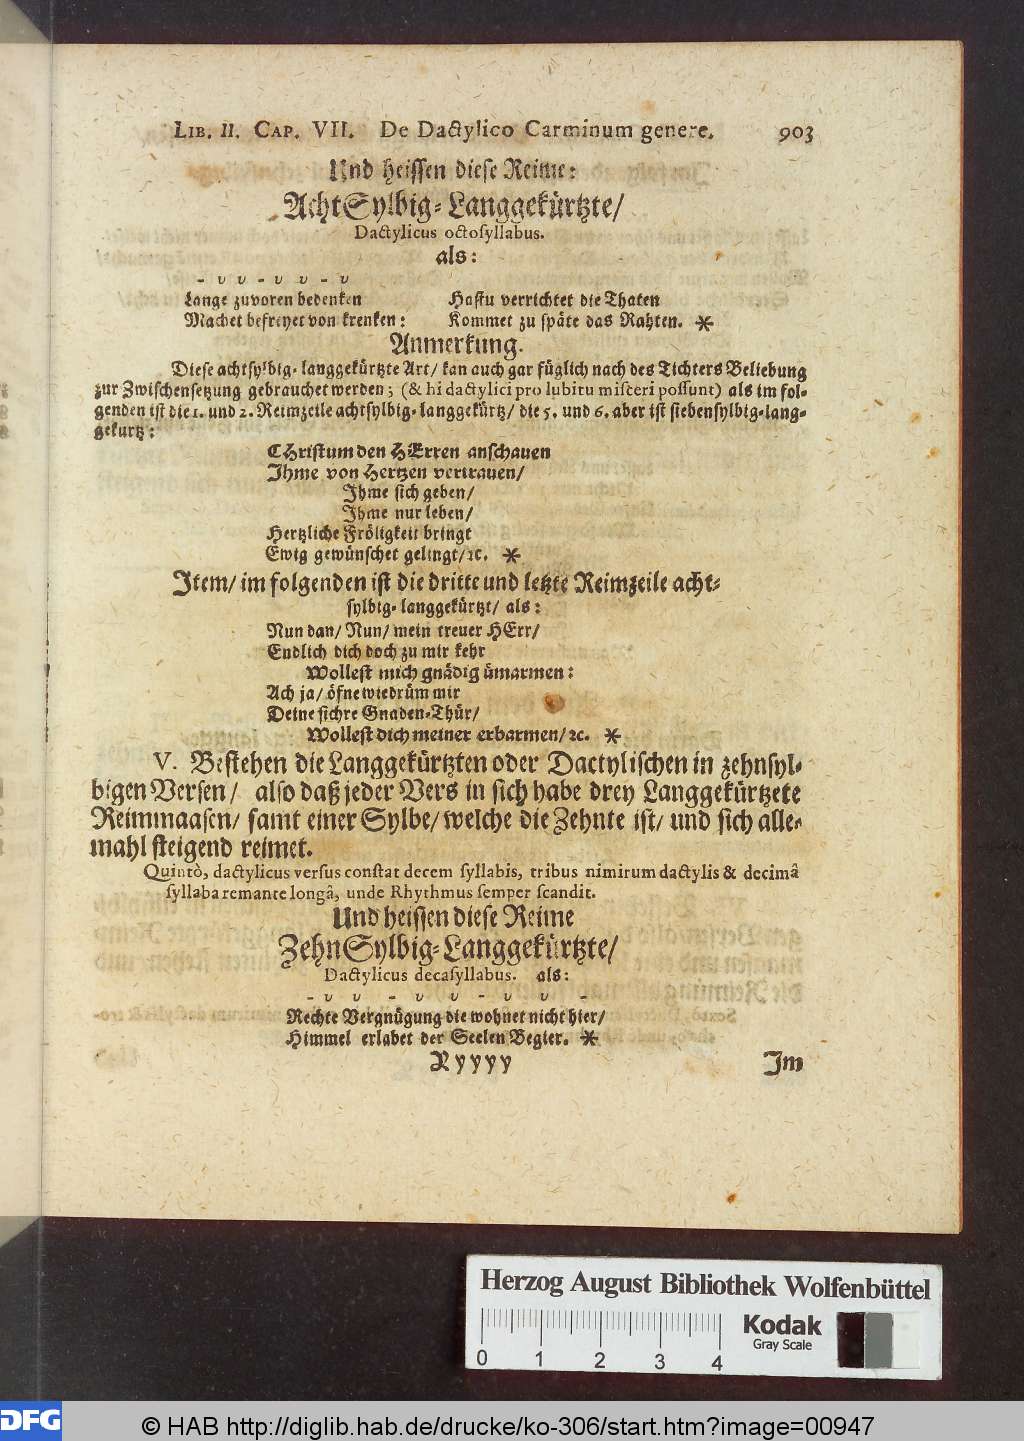 Lib. II. Cap. VII. De Dactylico Carminum genere. 903
Und heissen diese Reime:
AchtSylbig-Langgekürtzte/
Dactylicus octosyllabus.
als:
- υ υ - υ υ - υ
Lange zuvoren bedenken
Machet befreyet von krenken:
Hastu verrichtet die Thaten
Kommet zu späte das Rahten. *
Anmerkung.
Diese achtsylbig-langgekürtzte Art/ kan auch gar füglich nach des Tichters Beliebung
zur Zwischensetzung gebrauchet werden; (& hi dactylici pro lubitu misceri possunt) als im fol-
genden ist die 1. und 2. Reimzeile achtsylbig-langgekürtz/ die 5. und 6. aber ist siebensylbig-lang-
gekurtz:
CHristum den HErren anschauen
Ihme von Hertzen vertrauen/
Ihme sich geben/
Ihme nur leben/
Hertzliche Fröligkeit bringt
Ewig gewünschet gelingt/ ꝛc. *
Item/ im folgenden ist die dritte und letzte Reimzeile acht-
sylbig-langgekürtzt/ als:
Nun dan/ Nun/ mein treuer HErr/
Endlich dich doch zu mir kehr
Wollest mich gnädig ümarmen:
Ach ja/ öfne wiedrüm mir
Deine sichre Gnaden-Thür/
Wollest dich meiner erbarmen/ ꝛc. *
V. Bestehen die Langgekürtzten oder Dactylischen in zehnsyl-
bigen Versen/ also daß jeder Vers in sich habe drey Langgekürtzete
Reimmaasen/ samt einer Sylbe/ welche die Zehnte ist/ und sich alle-
mahl steigend reimet.
Quintò, dactylicus versus constat decem syllabis, tribus nimirum dactylis & decimâ
syllaba remante longâ, unde Rhythmus semper scandit.
Und heissen diese Reime
ZehnSylbig-Langgekürtzte/
Dactylicus decasyllabus. als:
- υ υ - υ υ - υ υ -
Rechte Vergnügung die wohnet nicht hier/
Himmel erlabet der Seelen Begier. *
Y y y y y
Im
Herzog August Bibliothek Wolfenbüttel
Kodak
Gray Scale
0 1 2 3 4
DFG
© HAB http://diglib.hab.de/drucke/ko-306/start.htm?image=00947